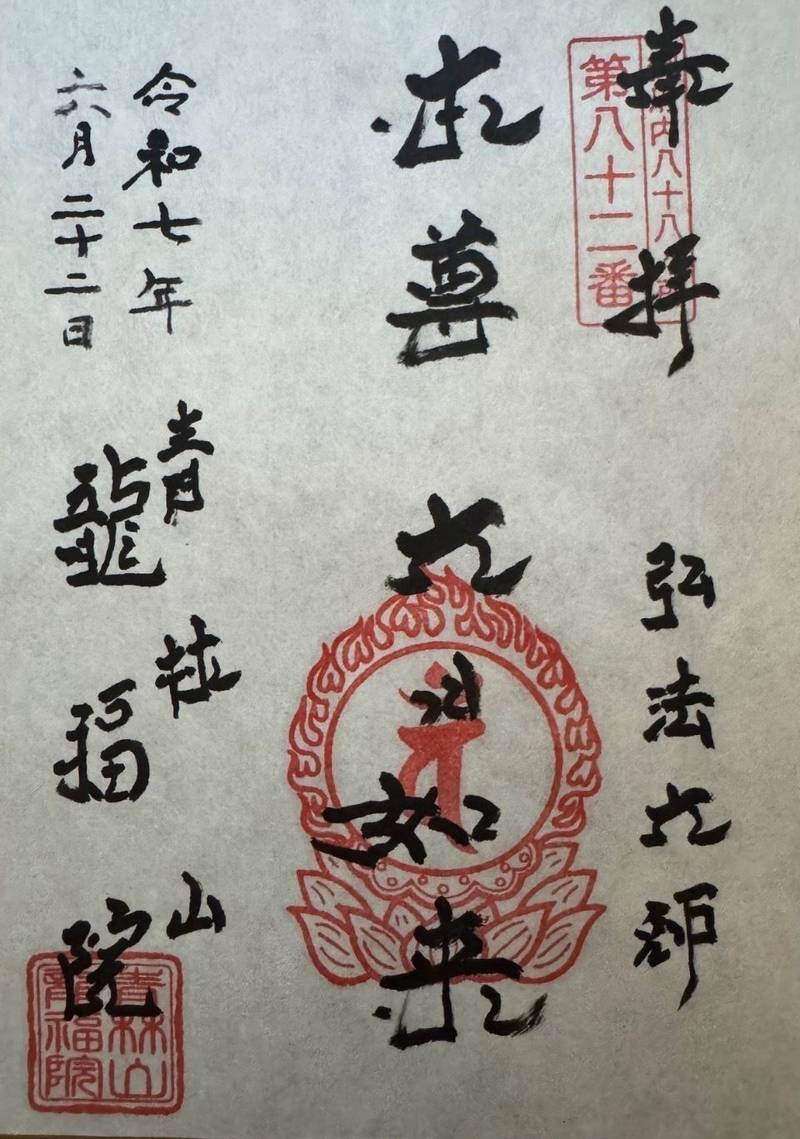 奉拝
内八十八
第八十二番
弘法大師
本尊
大日如来
令和七年
六月二十二日
青林山
龍福院
青林山
龍福院